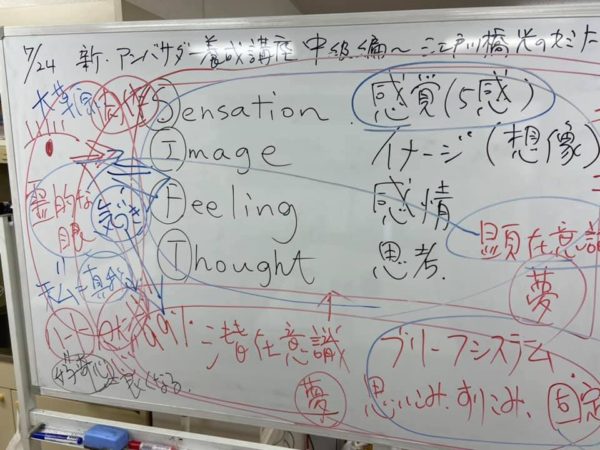 7/24 新・アンバサダー養成講座 中級編〜江戸川橋光のセミナ
Sensation 感覚(5感)
Image イメージ(想像)
Feeling 感情
Thought 思考.
霊的な
眼
気づき
顕在意識
夢
潜在意識
夢
ブリーフシステム
思いこみ.すりこみ.固定
好奇心 と 良くなる.